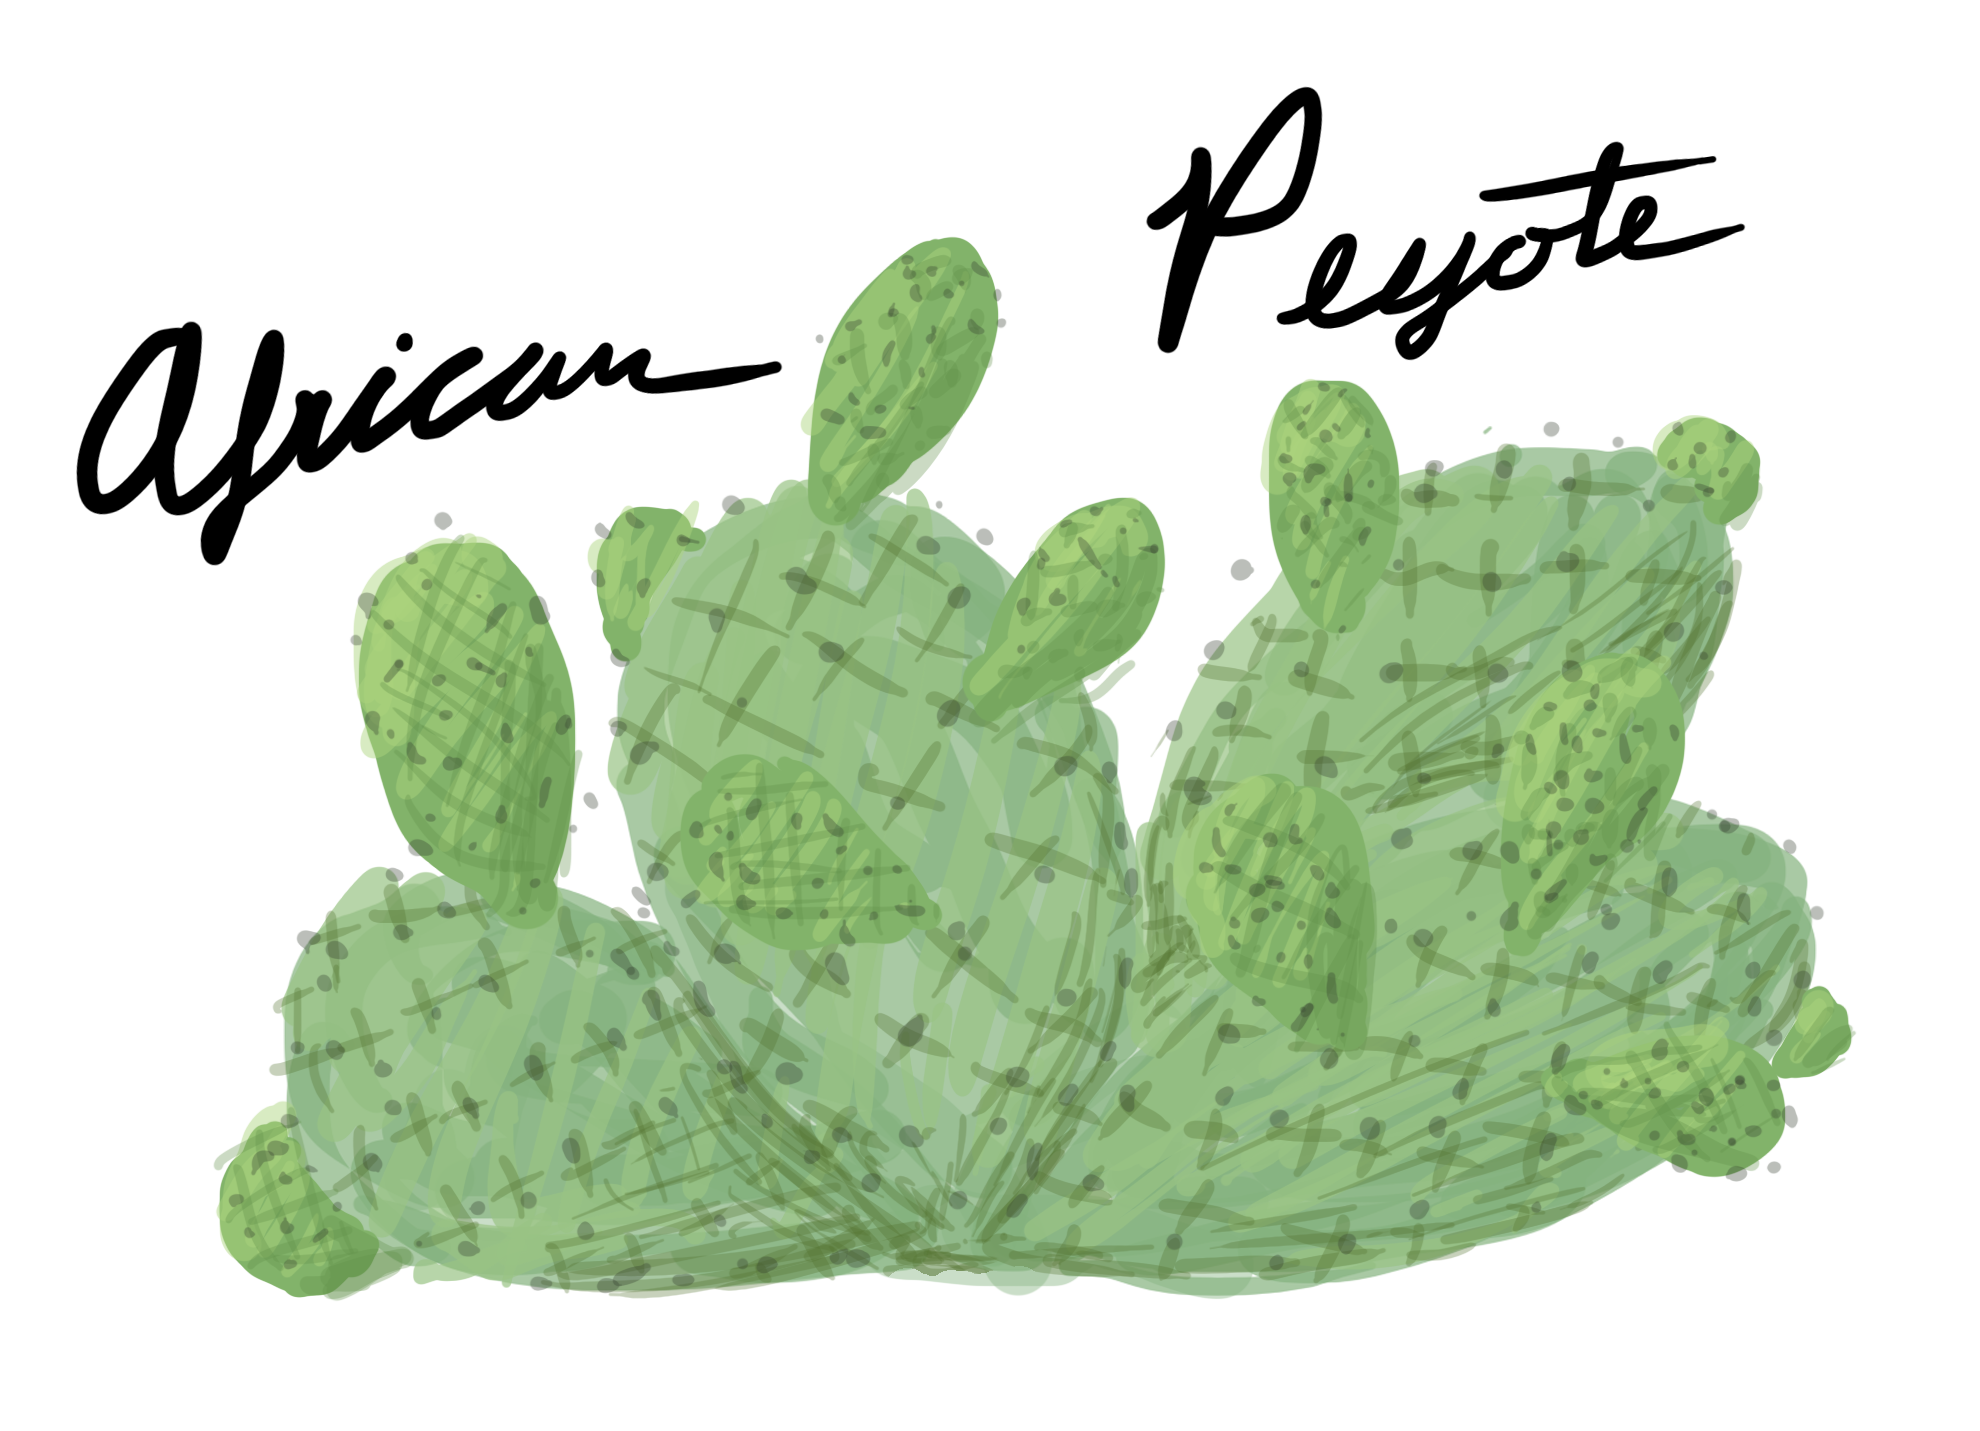 African Peyote